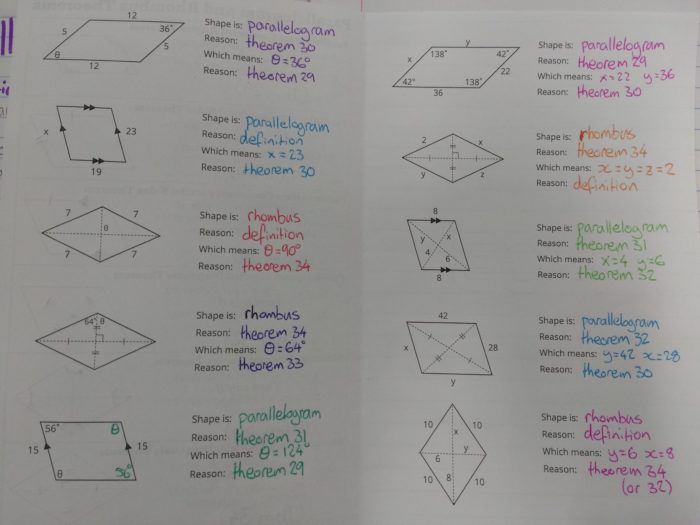 12
5
36°
θ
5
12
Shape is: parallelogram
Reason: theorem 30
Which means: θ=36°
Reason: theorem 29
x
23
19
Shape is: parallelogram
Reason: definition
Which means: x = 23
Reason: theorem 30
7
7
θ
7
7
Shape is: rhombus
Reason: definition
Which means: θ=90°
Reason: theorem 34
64°
θ
Shape is: rhombus
Reason: theorem 34
Which means: θ=64°
Reason: theorem 33
56°
θ
15
15
θ
56°
Shape is: parallelogram
Reason: theorem 31
Which means: θ=124°
Reason: theorem 29
y
138°
42°
x
22
42°
138°
36
Shape is: parallelogram
Reason: theorem 29
Which means: x=22 y=36
Reason: theorem 30
2
x
y
z
Shape is: rhombus
Reason: theorem 34
Which means: x=y=z=2
Reason: definition
8
y
x
4
6
8
Shape is: parallelogram
Reason: theorem 31
Which means: x=4 y=6
Reason: theorem 32
42
x
28
y
Shape is: parallelogram
Reason: theorem 32
Which means: y=42 x=28
Reason: theorem 30
10
10
x
y
6
8
10
10
Shape is: rhombus
Reason: definition
Which means: y=6 x=8
Reason: theorem 34
(or 32)